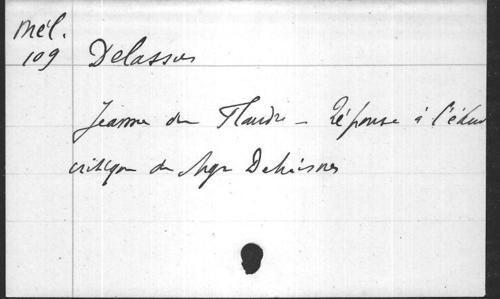 Mél.
109 Delassus
Jeanne de Flandre – Réponse à l'étude
critique de Mgr Dehaisnes